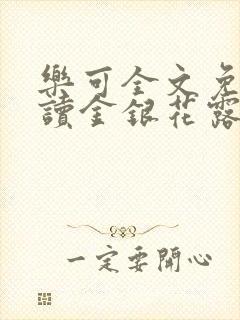 樂可全文免
讀金銀花露
一定要開心